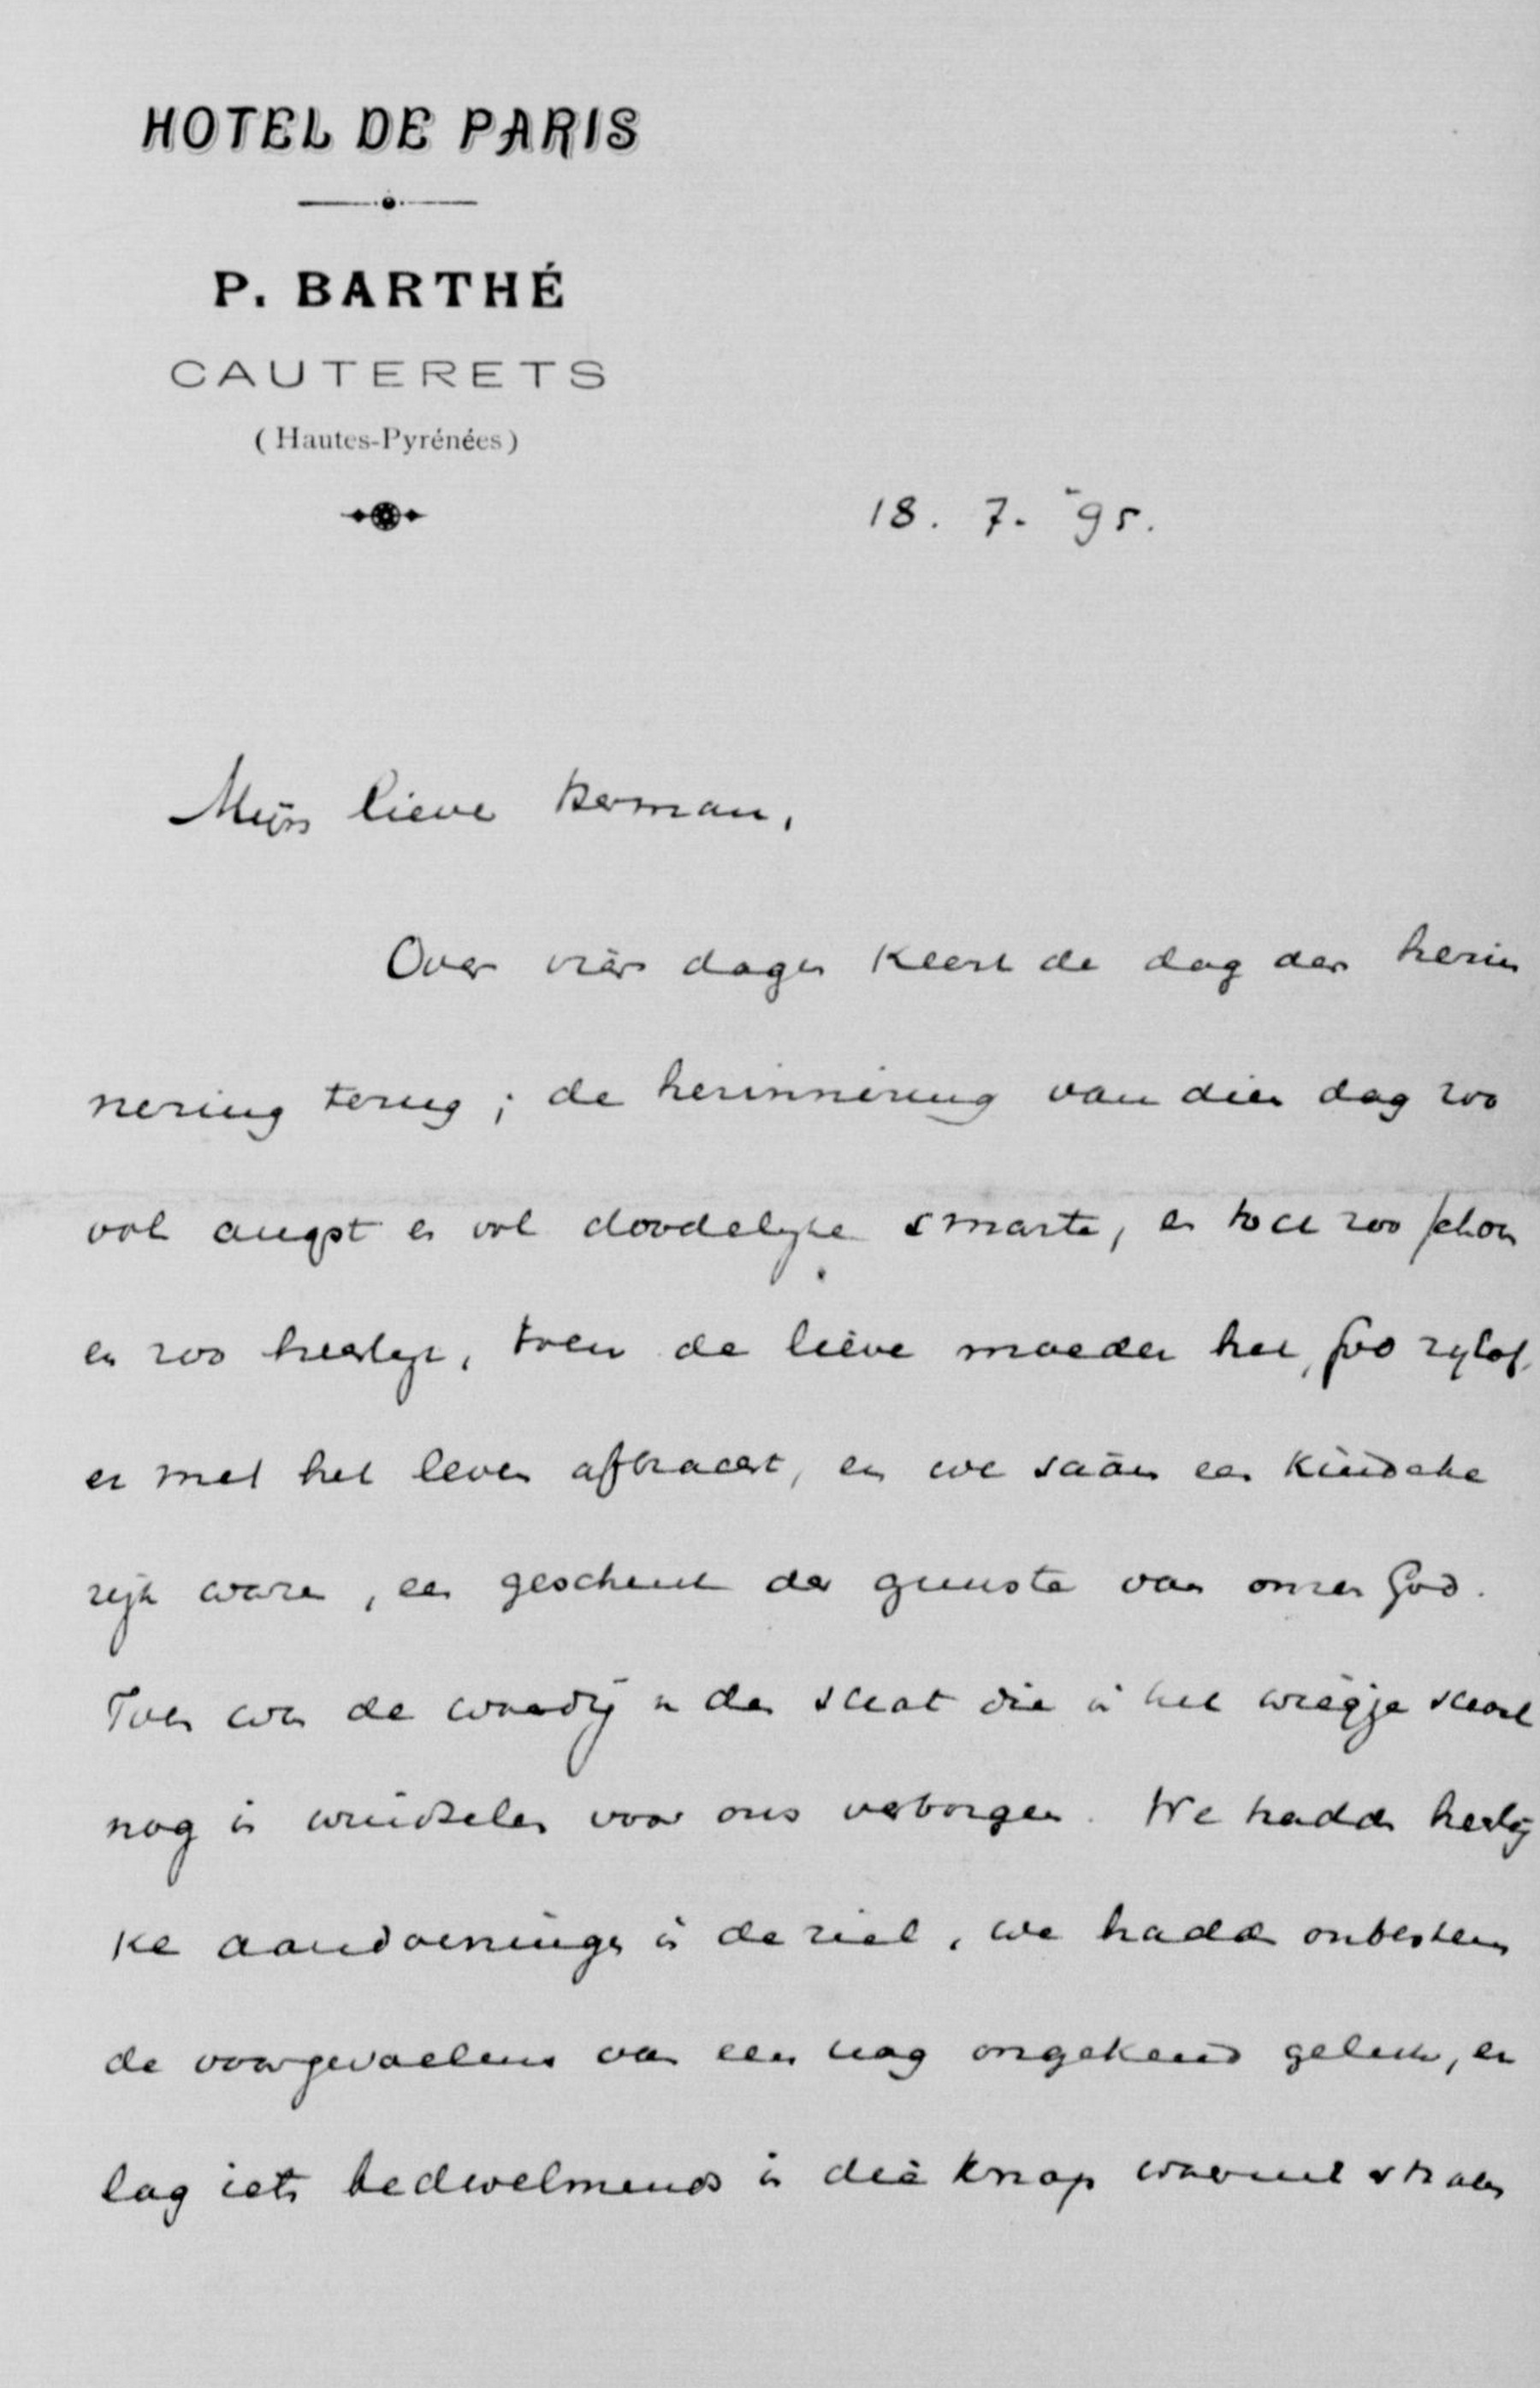 HOTEL DE PARIS
P. BARTHÉ
CAUTERETS
(Hautes-Pyrénées)
18. 7. 95.
Mijn lieve Herman,
Over vier dagen keert de dag der herin
nering terug; de herinnering van dien dag zoo
vol angst en vol doodelijke smarte, en toch zoo schoon
en zoo heerlijk, toen de lieve moeder het, God zij lof,
er met het leven afbracht, en we saâm een kindeke
rijk waren, een geschenk der gunste van onzen God.
Toen was de waardij van den schat die in het wiegje school
nog in windselen voor ons verborgen. We hadden heerlij
ke aandoeningen in de ziel, we hadden onbestem
de voorgevoelens van een nog ongekend geluk, er
lag iets bedwelmends in die knop waaruit straks